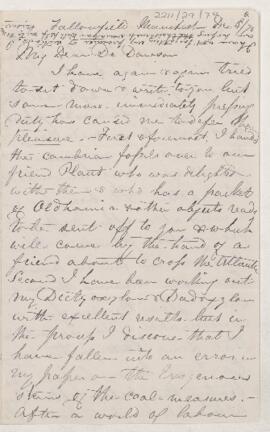 2211/27/78
Fallowfield Manchester Dec 18/78
My Dear Dr Dawson
I have again & again tried
to sit down & write to you but
some more immediately pressing
duty has caused me to defer the
pleasure. - First & foremost I handed
the cambrian fossils over to our
friend Plant who was delighted
with them & who has a packet
of Oldhamia & other objects ready
to be sent off to you & which
will come by the hand of a
friend about to cross the Atlantic
Second I have been working out
my Dictyoxylon & Dadoxylon
with excellent results. But in
the process I discover that I
have fallen into an error in
my paper on the Exogenous
stems of the coal-measures. -
After a world of labour